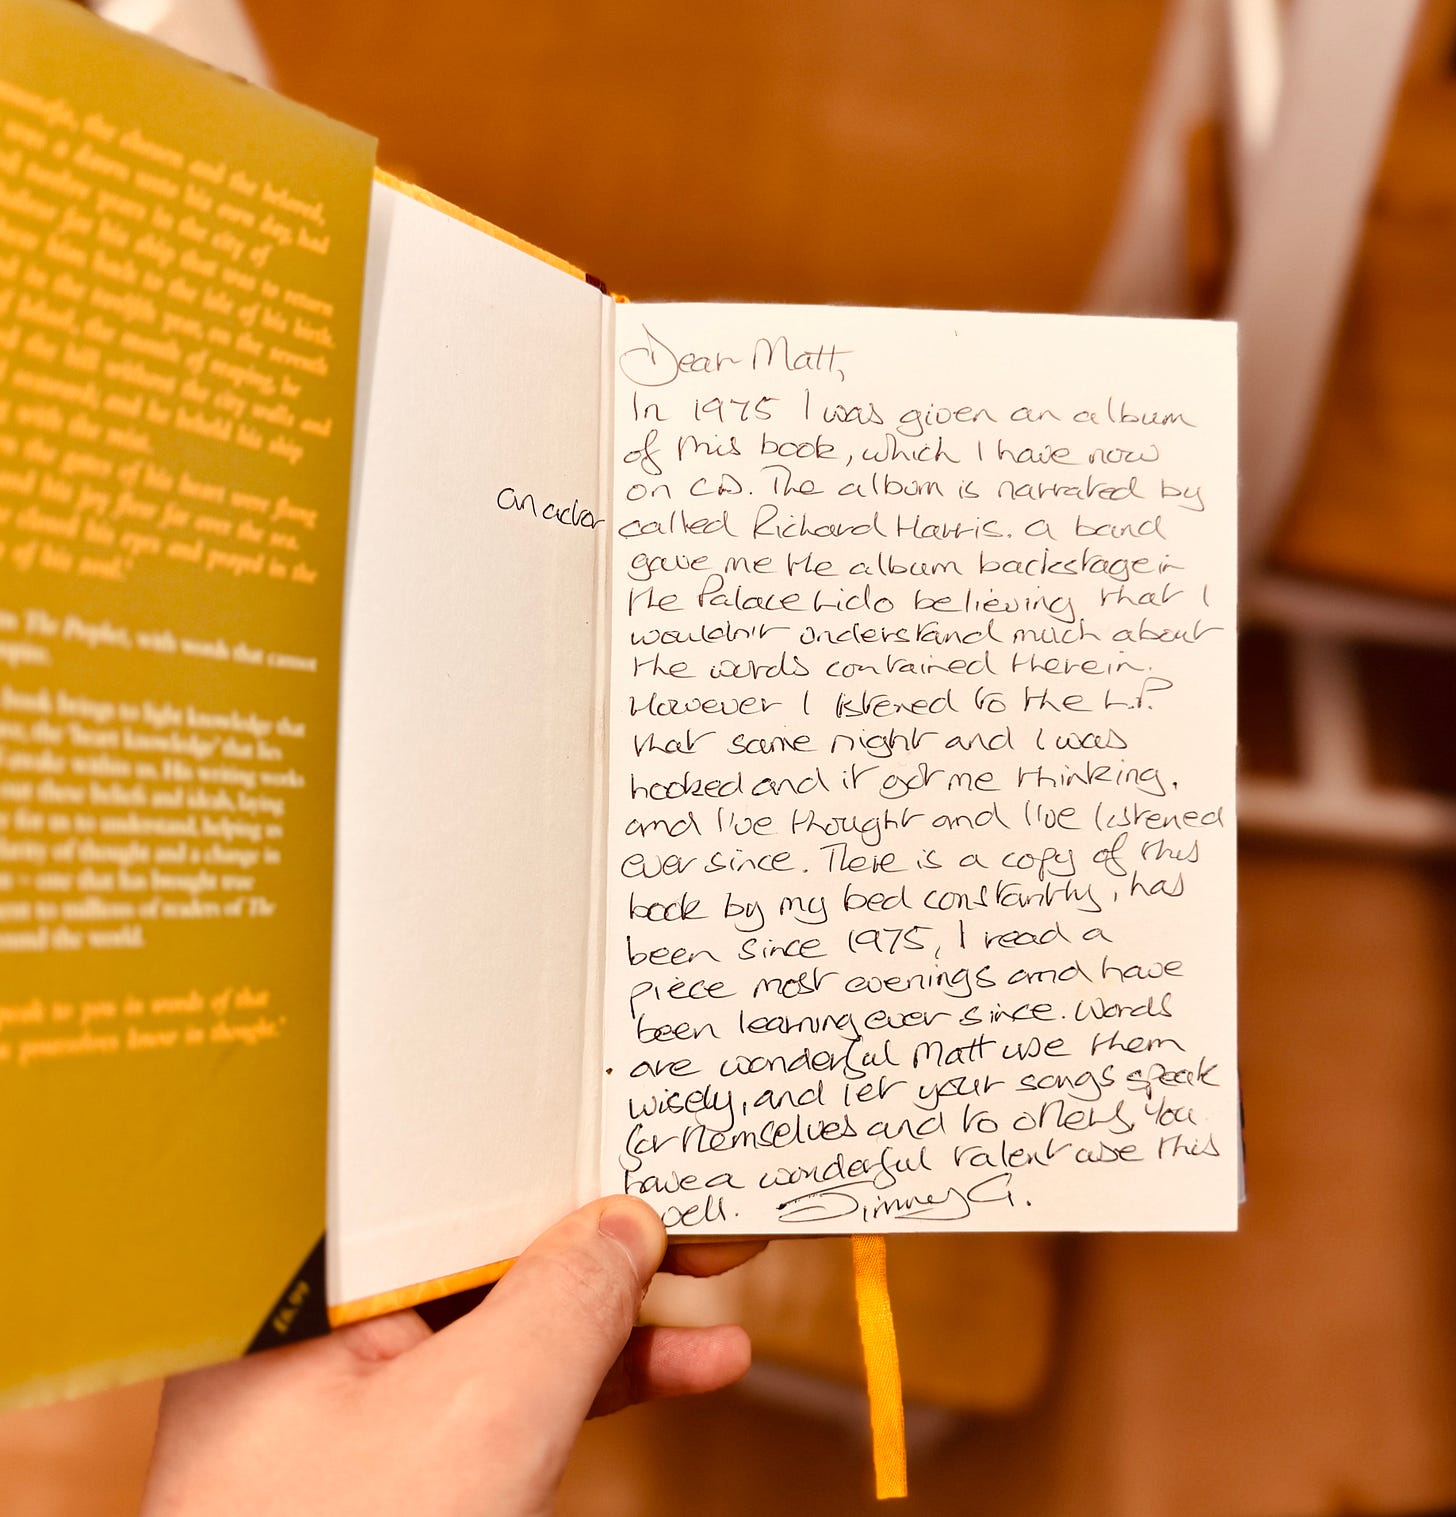 the chosen and the beloved,
was a dawn unto his own day, had
twelve years in the city of
for his ship that was to return
him back to the isle of his birth.
in the twelfth year, on the seventh
the month of reaping, he
the hill without the city walls and
seaward; and he beheld his ship
with the mist.
the gates of his heart were flung
and his joy flew far over the sea.
closed his eyes and prayed in the
of his soul.'
The Prophet, with words that cannot
book brings to light knowledge that
the 'heart knowledge' that lies
awake within us. His writing works
out these beliefs and ideals, laying
for us to understand, helping us
clarity of thought and a change in
– one that has brought true
to millions of readers of The
around the world.
speak to you in words of that
yourselves know in thought.'
£6.99
Dear Matt,
In 1975 I was given an album
of this book, which I have now
on CD. The album is narrated by
an actor called Richard Harris. A band
gave me the album backstage in
the Palace Lido believing that I
wouldn't understand much about
the words contained therein.
However I listened to the L.P
that same night and I was
hooked and it got me thinking.
and I've thought and I've listened
ever since. There is a copy of this
book by my bed constantly, has
been since 1975, I read a
piece most evenings and have
been learning ever since. Words
are wonderful Matt use them
wisely, and let your songs speak
for themselves and to others. You
have a wonderful talent use this
well. Jimmy G.